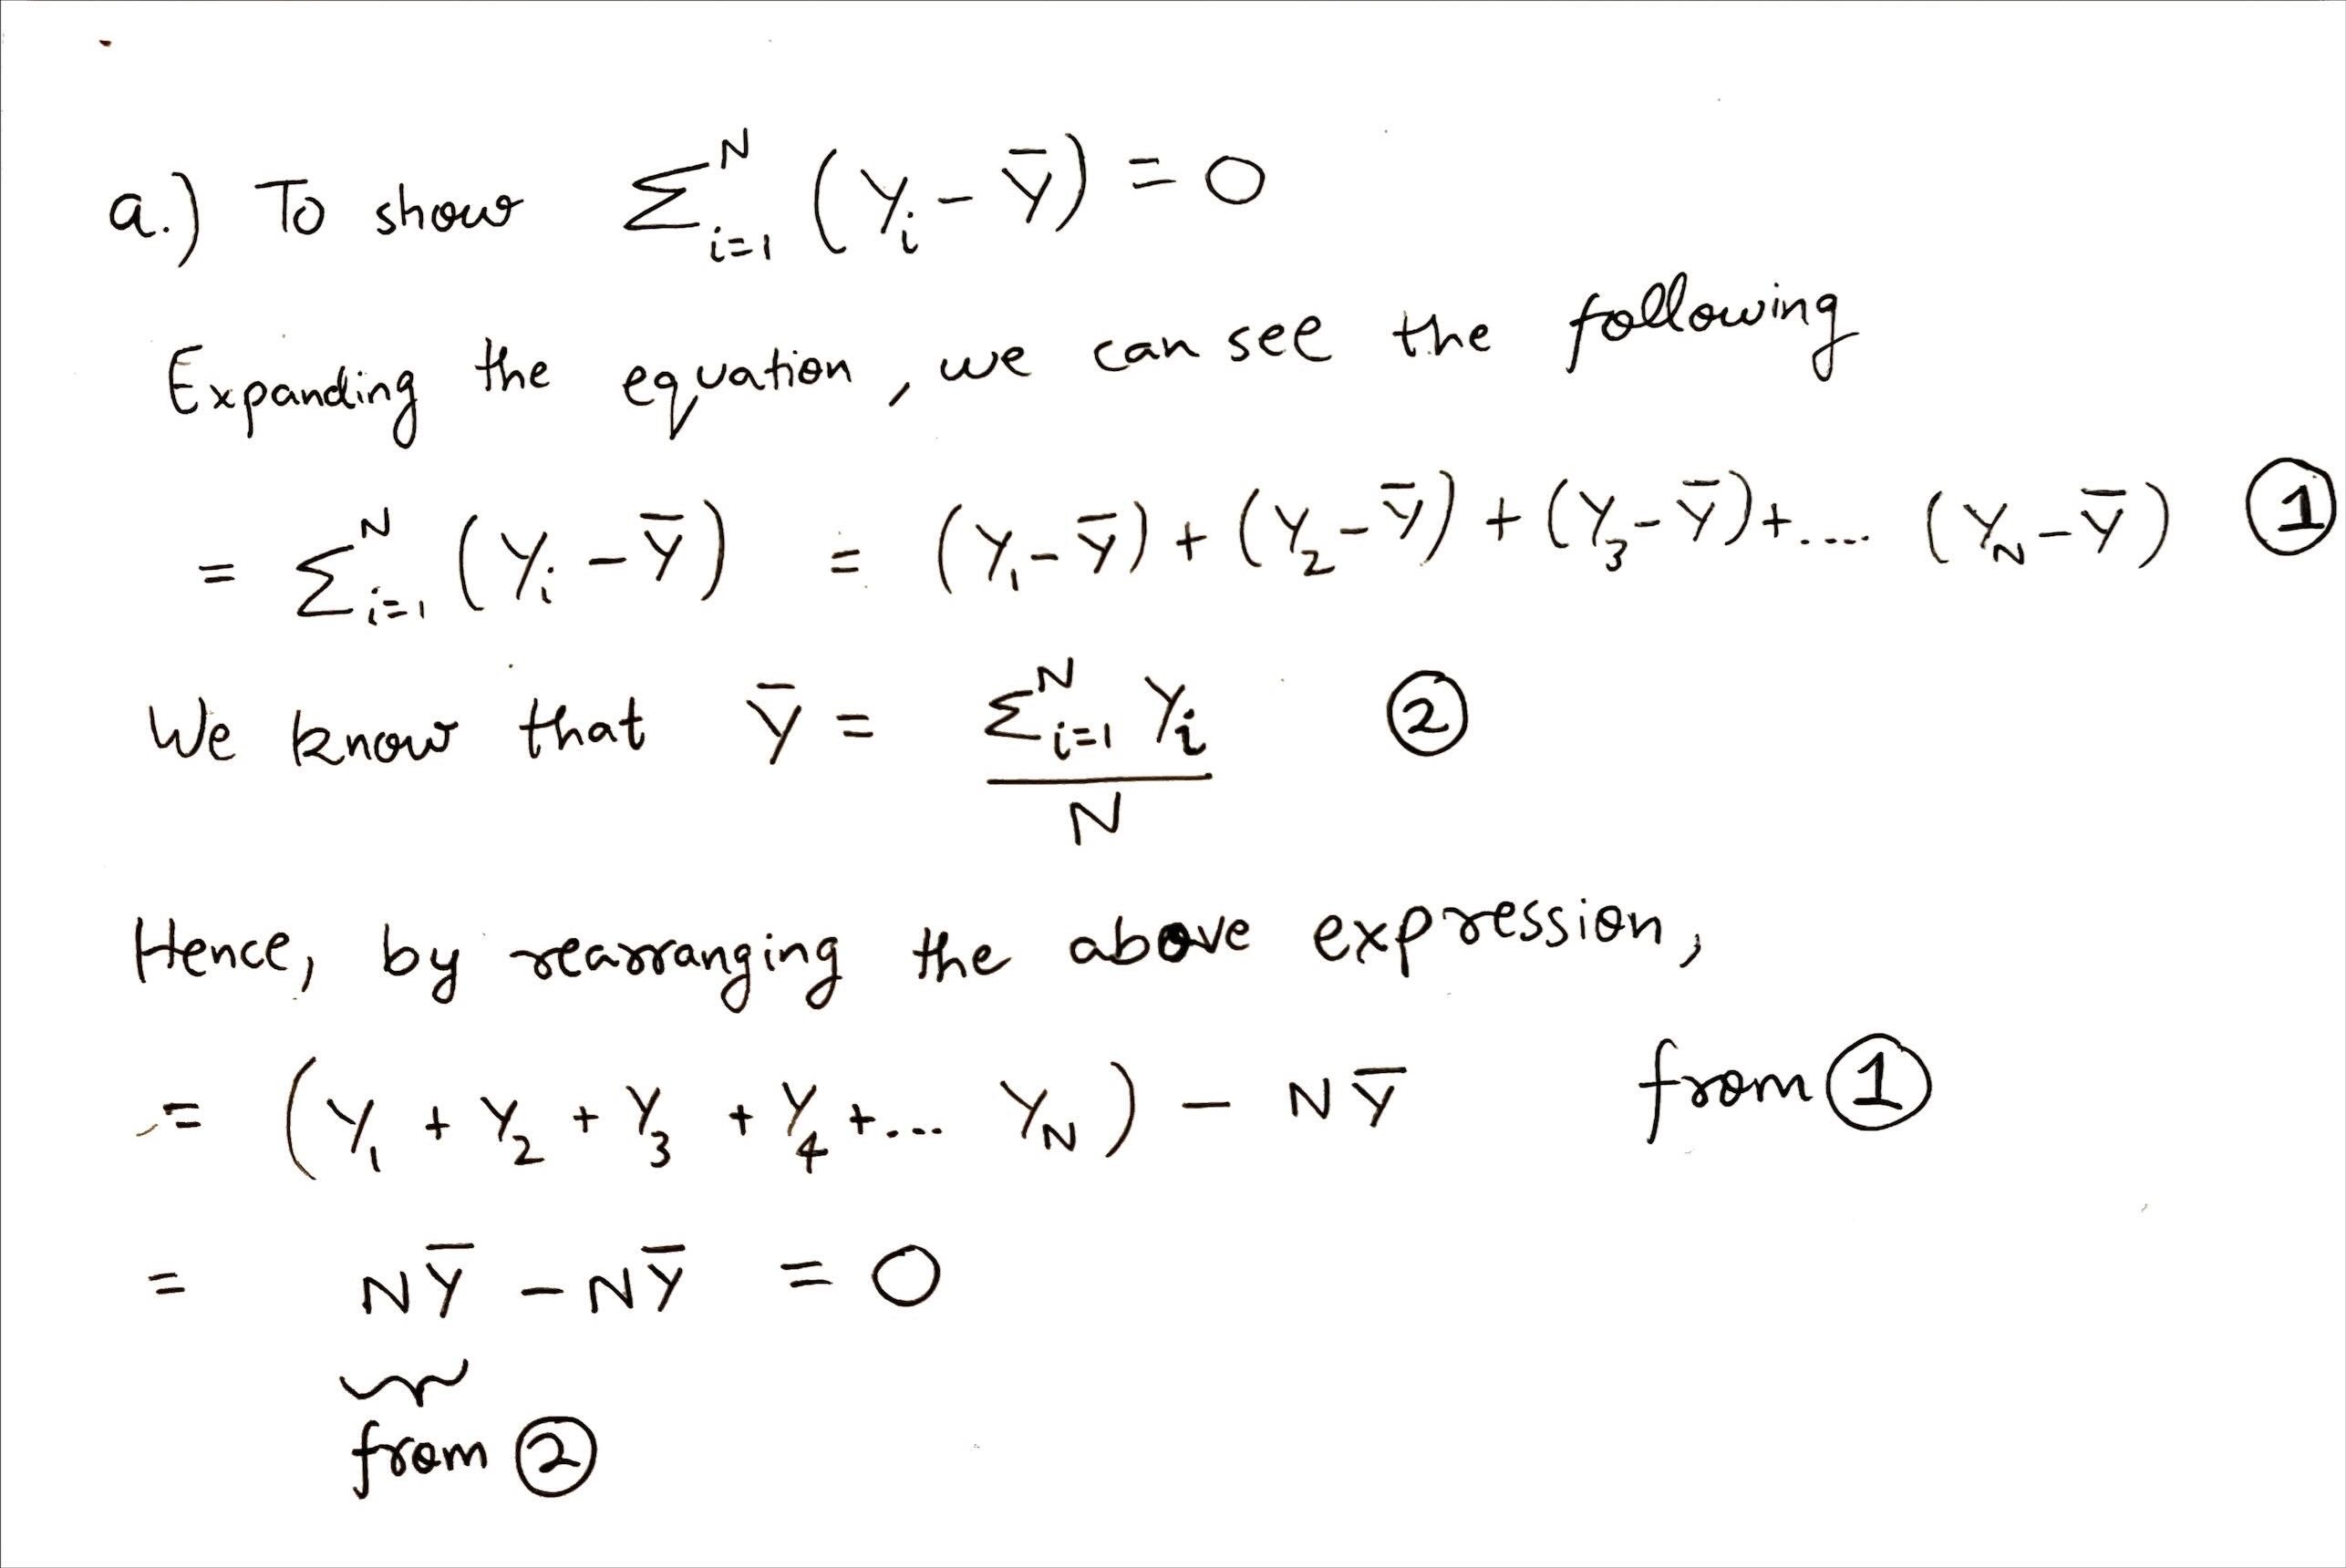 a.) To show Σ^N_{i=1} (Y_i - Ȳ) = 0
Expanding the equation, we can see the following
= Σ^N_{i=1} (Y_i - Ȳ) = (Y_1 - Ȳ) + (Y_2 - Ȳ) + (Y_3 - Ȳ) + .... (Y_N - Ȳ) ①
We know that Ȳ = Σ^N_{i=1} Y_i / N ②
Hence, by rearranging the above expression,
= (Y_1 + Y_2 + Y_3 + Y_4 + ... Y_N) - NȲ from ①
= NȲ - NȲ = 0
from ②